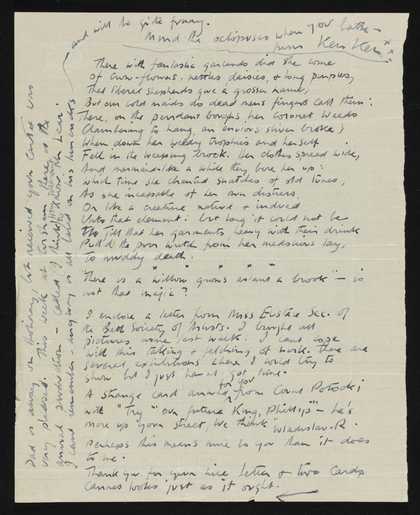 and will be quite funny.
Mind the octopuses when you bathe -
from Ken Ken xx
There with fantastic garlands did she come
of crow-flowers, nettles, daisies, & long purples,
That liberal shepherds give a grosser name,
But our cold maids do dead men's fingers call them:
There, on the pendant boughs her coronet weeds
Clambering to hang, an envious sliver broke;
When down her weedy trophies and herself
Fell in the weeping brook. Her clothes spread wide,
And mermaid-like a while they bore her up:
which time she chanted snatches of old tunes,
As one incapable of her own distress
Or like a creature native & indued
Unto that element: but long it could not be
Till that her garments heavy with their drink
Pull'd the poor wretch from her melodious lay,
To muddy death.
There is a "willow grows aslant a brook" - is
not that magic?
I enclose a letter from Miss Eustace Sec. of
the Society of Artists. I brought all
pictures home last week. I can't cope
with this talking & fetching, at work. There are
several exhibitions where I could try to
show but I just haven't got time.
A strange card arrived for you from Count Potocki
with "Try" our future King, Phillip" - he's
more up your street, we think. Wladislav R.
perhaps this means more to you than it does
to me.
Thank you for your nice letter & two cards
Cannes looks just as it ought.
Dad is away on holiday, but received your card & was
very pleased. This week at Wareham there is the
annual